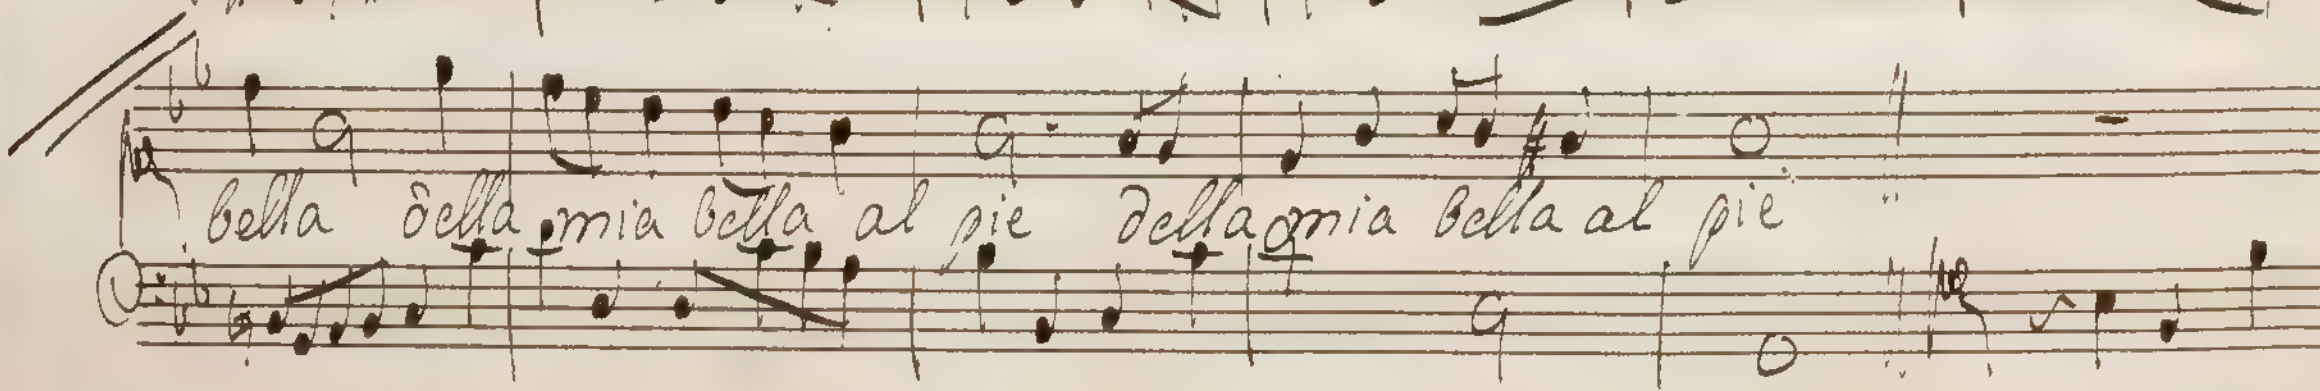 bella della mia bella al pie della mia bella al pie